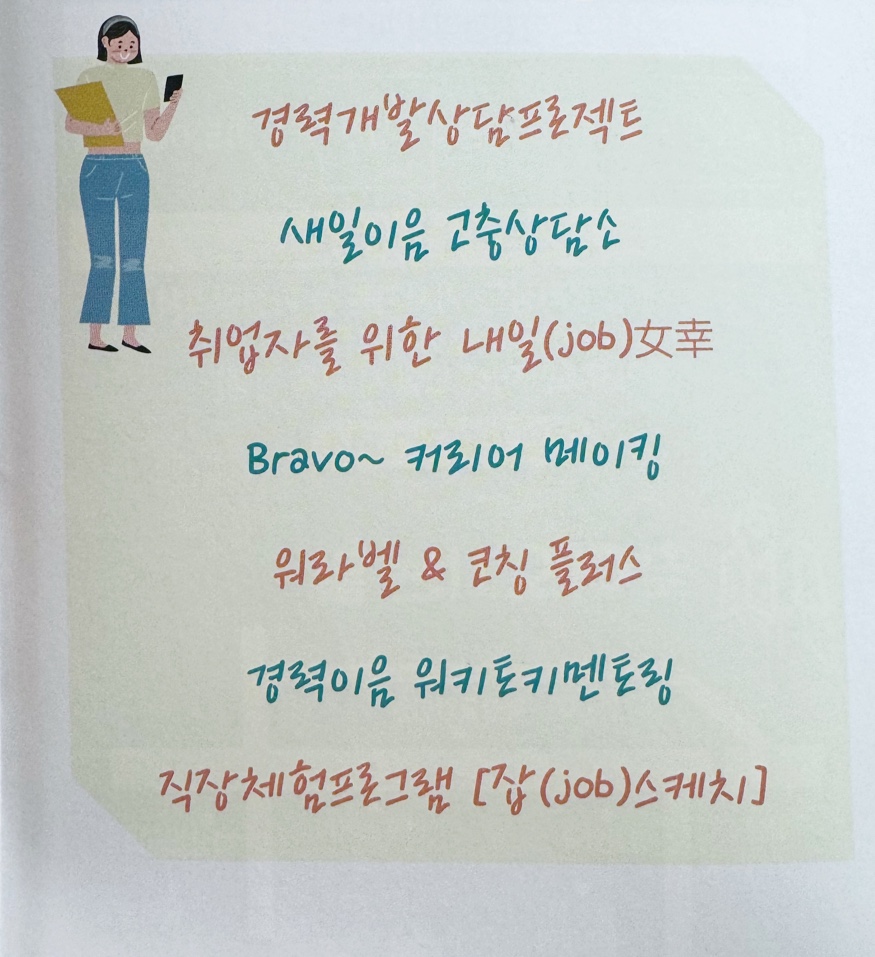 경력개발상담프로젝트
새일이음 고충상담소
취업자를 위한 내일(job)女幸
Bravo~ 커리어 메이킹
워라벨 & 코칭 플러스
경력이음 워키토키멘토링
직장체험프로그램 [잡(job)스케치]